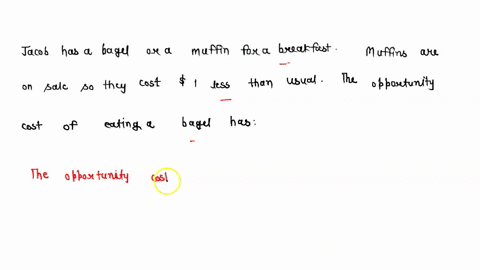 Jacob has a bagel or a muffin for a breakfast. Muffins are
on sale so they cost $1 less than usual. The opportunity
cost of eating a bagel has:
The opportunity cost